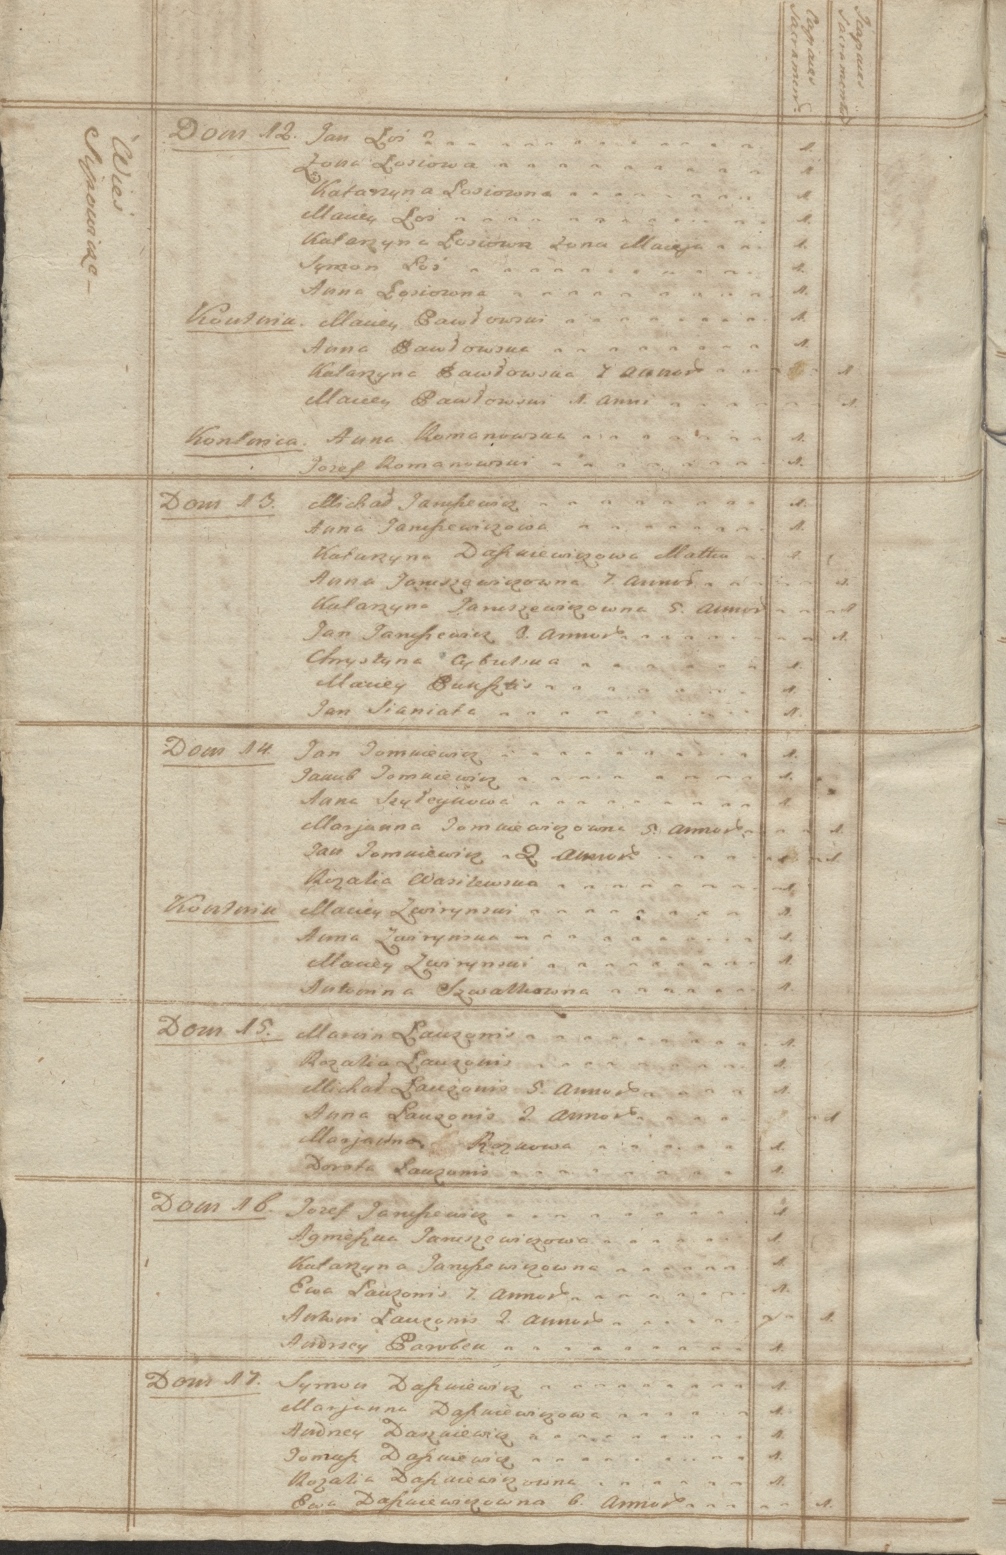 Capaces Sacramen:
Incapaces Sacramentis
Wieś
Dom 12. Jan Łoś
Żona Łosiowa 1.
Katarzyna Łosiowna 1.
Maciey Łoś 1.
Katarzyna Łosiowa Żona Macieja 1.
Symon Łoś 1.
Anna Łosiowna 1.
Kontnik. Maciey Pawłowski 1.
Anna Pawłowska 1.
Katarzyna Pawłowska 7 annor 1.
Maciey Pawłowski 1. anni 1.
Kontnica. Anna Romanowska 1.
Jozef Romanowski 1.
Dom 13. Michał Januszewicz 1.
Anna Januszewiczowa 1.
Katarzyna Daszkiewiczowa Matka
Anna Januszewiczowna 7. annor 1.
Katarzyna Januszewiczowna 5. annor 1
Jan Januszewicz 3. annor 1.
Chrystyna Cybulska 1.
Maciey 1.
Jan Sianiata 1.
Dom 14. Jan Tomkiewicz 1.
Jakub Tomkiewicz 1.
Anna 1
Marjanna Tomkiewiczowna 5. annor 1
Jan Tomkiewicz 2 annor 1
Rozalia Wasilewska
Kontnik Maciey Zwirynski 1.
Anna Zwirynska 1.
Maciey Zwirynski 1.
Antonina 1.
Dom 15. Marcin Lauzonis 1.
Rozalia Lauzonis 1.
Michał Lauzonis 5. annor 1.
Anna Lauzonis 2 annor 1
Marjanna 1.
Dorota Lauzonis 1.
Dom 16. Jozef Januszewicz 1
Agnieszka Januszewiczowa 1.
Katarzyna Januszewiczowna 1.
Ewa Lauzonis 7. annor 1.
Antoni Lauzonis 2. annor 1.
Andrzey Parobek 1.
Dom 17. Symon Daszkiewicz 1.
Marjanna Daszkiewiczowa 1.
Andrey Daszkiewicz 1.
Tomasz Daszkiewicz 1.
Rozalia Daszkiewiczowna 1.
Ewa Daszkiewiczowna 6. annor 1.